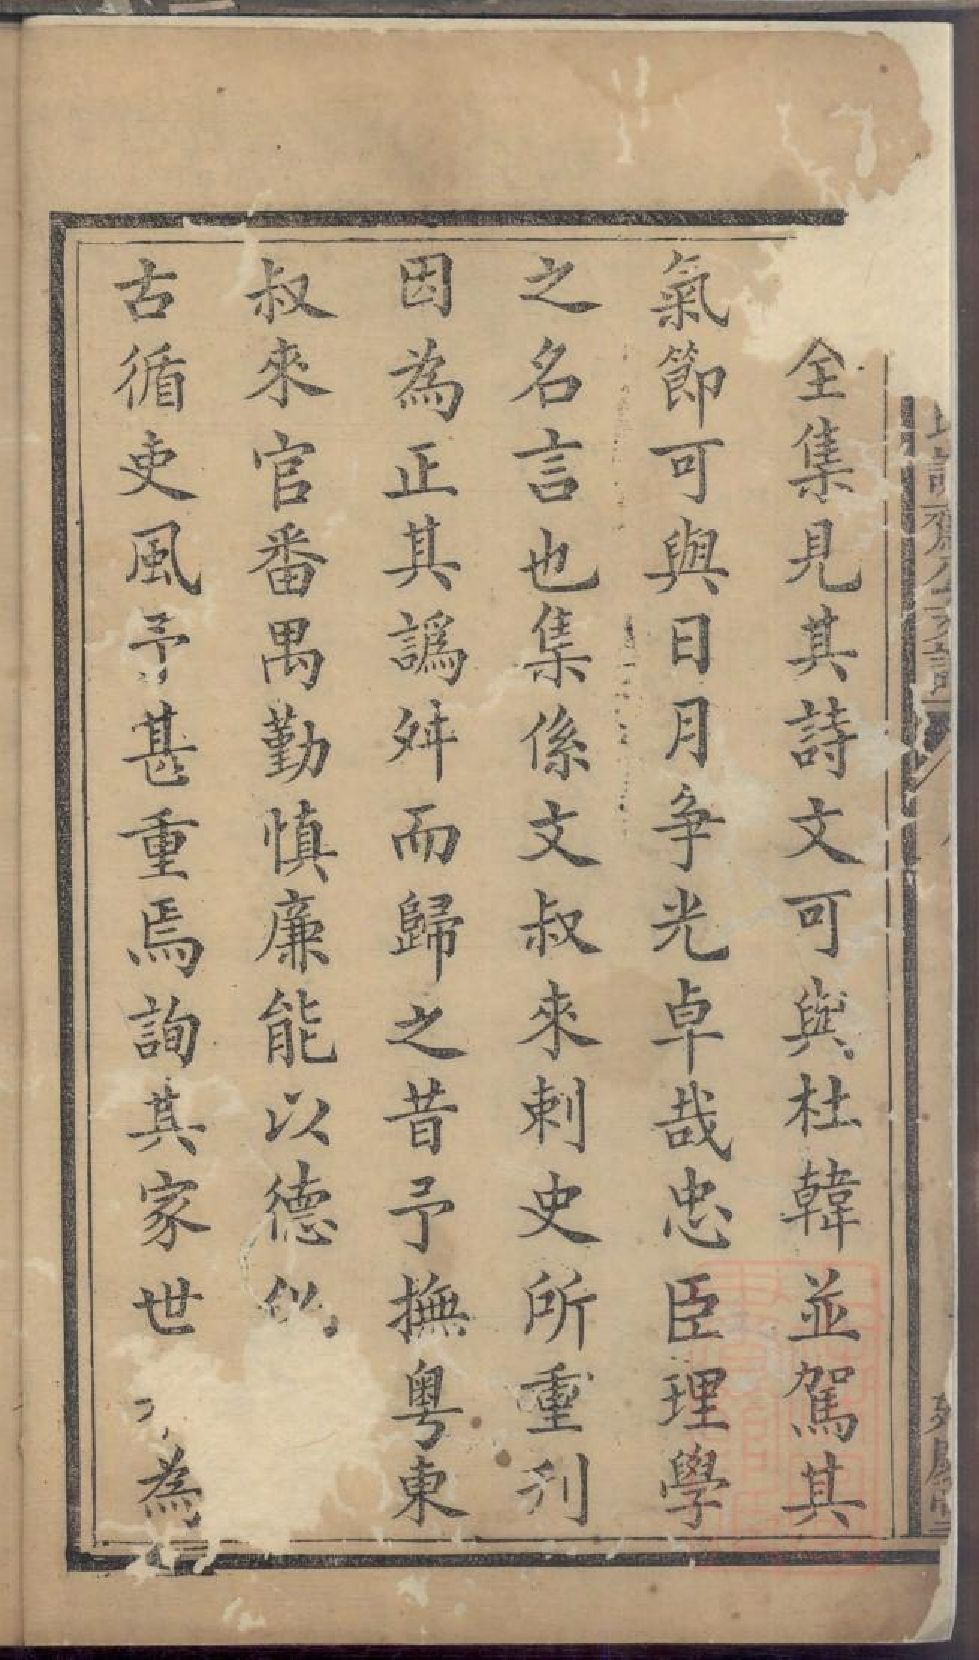 全集見其詩文可與杜韓並駕其
氣節可與日月争光卓哉忠臣理學
之名言也集係文叔來刺史所重刊
因為正其譌舛而歸之昔予撫粵東
叔來官番禺勤慎廉能以德化
古循吏風予甚重焉詢其家世為